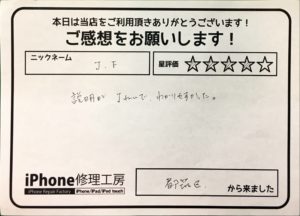 本日は当店をご利用頂きありがとうございます!
ご感想をお願いします!
ニックネーム
J.F
星評価 ☆☆☆☆☆
説明が 丁ねいで、わかりやすかった。
iPhone修理工房
iPhone Repair Factory iPhone/iPad/iPod touch
都筑区 から来ました